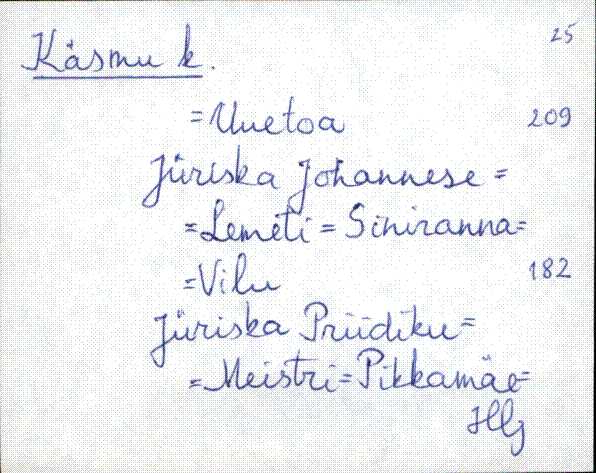 25
Käsmu k.
=Uuetoa 209
Jüriska Johannese =
=Lemeti = Siniranna=
=Vilu 182
Jüriska Priidiku=
=Meistri=Pikkamäe=